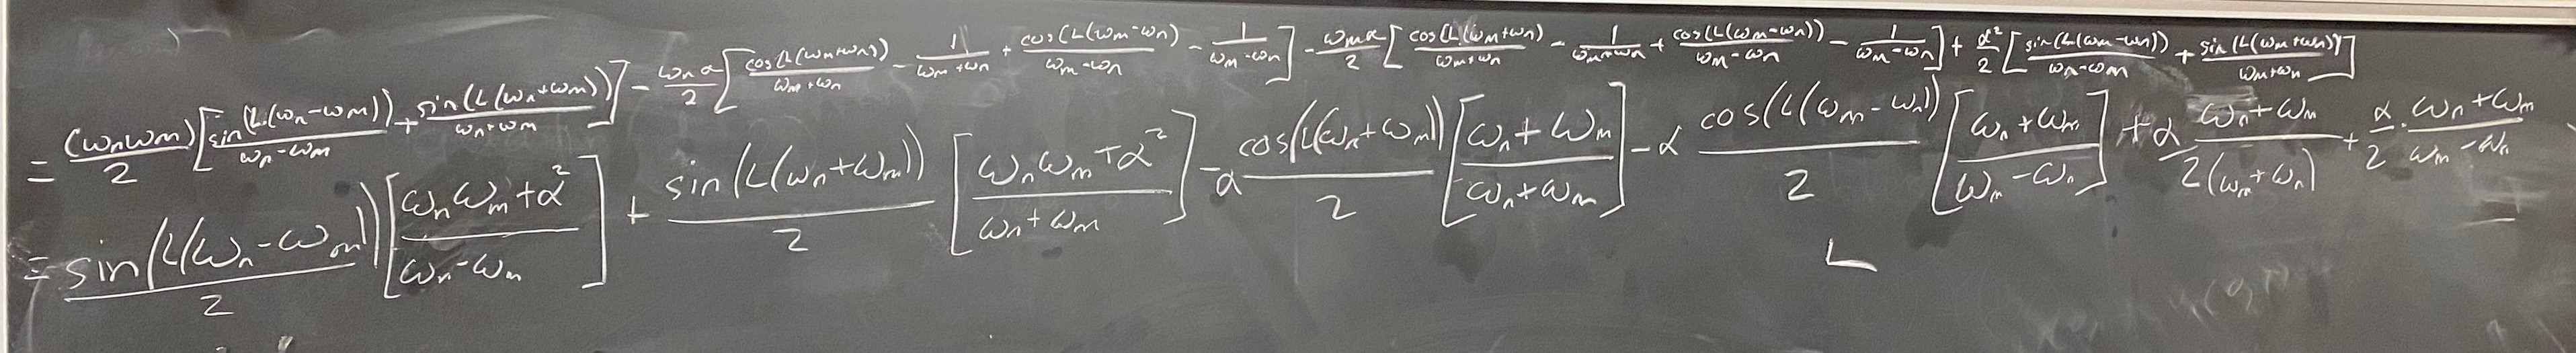 = \frac{(ω_n ω_m)}{2} [ \frac{sin(L(ω_n - ω_m))}{ω_n - ω_m} + \frac{sin(L(ω_n + ω_m))}{ω_n + ω_m} ] - \frac{ω_n α}{2} [ \frac{cos(L(ω_m + ω_n))}{ω_m + ω_n} - \frac{1}{ω_m + ω_n} + \frac{cos(L(ω_m - ω_n)}{ω_m - ω_n} - \frac{1}{ω_m - ω_n} ] - \frac{ω_m α}{2} [ \frac{cos(L(ω_m + ω_n)}{ω_m + ω_n} - \frac{1}{ω_m + ω_n} + \frac{cos(L(ω_m - ω_n))}{ω_m - ω_n} - \frac{1}{ω_m - ω_n} ] + \frac{α^2}{2} [ \frac{sin(L(ω_m - ω_n))}{ω_n - ω_m} + \frac{sin(L(ω_m + ω_n))}{ω_m + ω_n} ]
= \frac{sin(L(ω_n - ω_m))}{2} [ \frac{ω_n ω_m + α^2}{ω_n - ω_m} ] + \frac{sin(L(ω_n + ω_m))}{2} [ \frac{ω_n ω_m + α^2}{ω_n + ω_m} ] - α \frac{cos(L(ω_n + ω_m))}{2} [ \frac{ω_n + ω_m}{ω_n + ω_m} ] - α \frac{cos(L(ω_m - ω_n))}{2} [ \frac{ω_n + ω_m}{ω_m - ω_n} ] + α \frac{ω_n + ω_m}{2(ω_m + ω_n)} + \frac{α}{2} · \frac{ω_n + ω_m}{ω_m - ω_n}